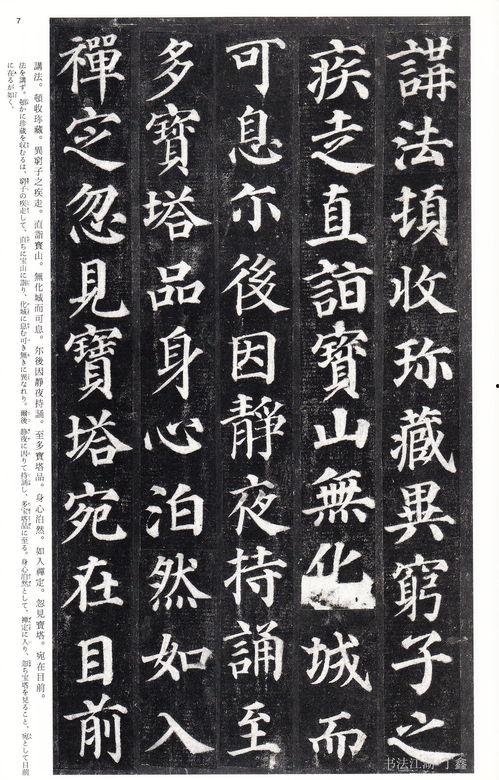 講法頓收珎藏異窮子之
疾走直詣寶山無化城而
可息尒後因靜夜持誦至
多寶塔品身心泊然如入
禪定忽見寶塔宛在目前
7
講法。頓收珍藏。異窮子之疾走。直詣寶山。無化城而可息。尓後因靜夜持誦。至多寶塔品。身心泊然。如入禪定。忽見寶塔。宛在目前。
法を講ず。頓かに珍藏を収むるは、窮子の疾走して、直ちに宝山に詣り、化城に息む可き無きに異なれり。爾後、静夜に因りて持誦し、多宝塔品に至る。身心泊然として、禅定に入り、忽ち宝塔を見ること、宛として目前
に在るが如く、
书法江湖
鑫